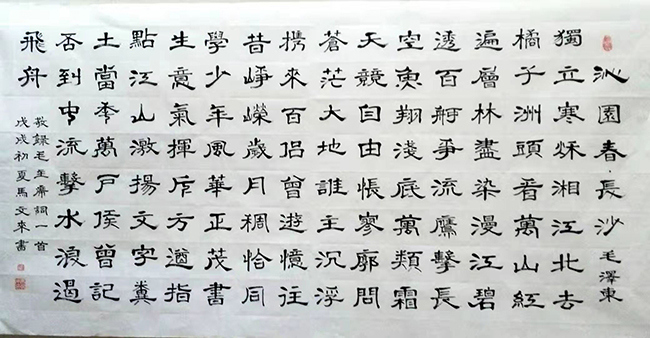 沁園春·長沙 毛澤東
獨立寒秌湘江北去
橘子洲頭看萬山紅
遍層林盡染漫江碧
透百舸爭流鷹擊長
空魚翔淺底萬類霜
天競自由悵寥廓問
蒼茫大地誰主沉浮
携來百侶曾遊憶往
昔崢嶸歲月稠恰同
學少年風華正茂書
生意氣揮斥方遒指
點江山激揚文字糞
土當秊萬戶侯曾記
否到中流擊水浪遏
飛舟
敬錄毛主席詞一首
戊戌初夏馬文來書